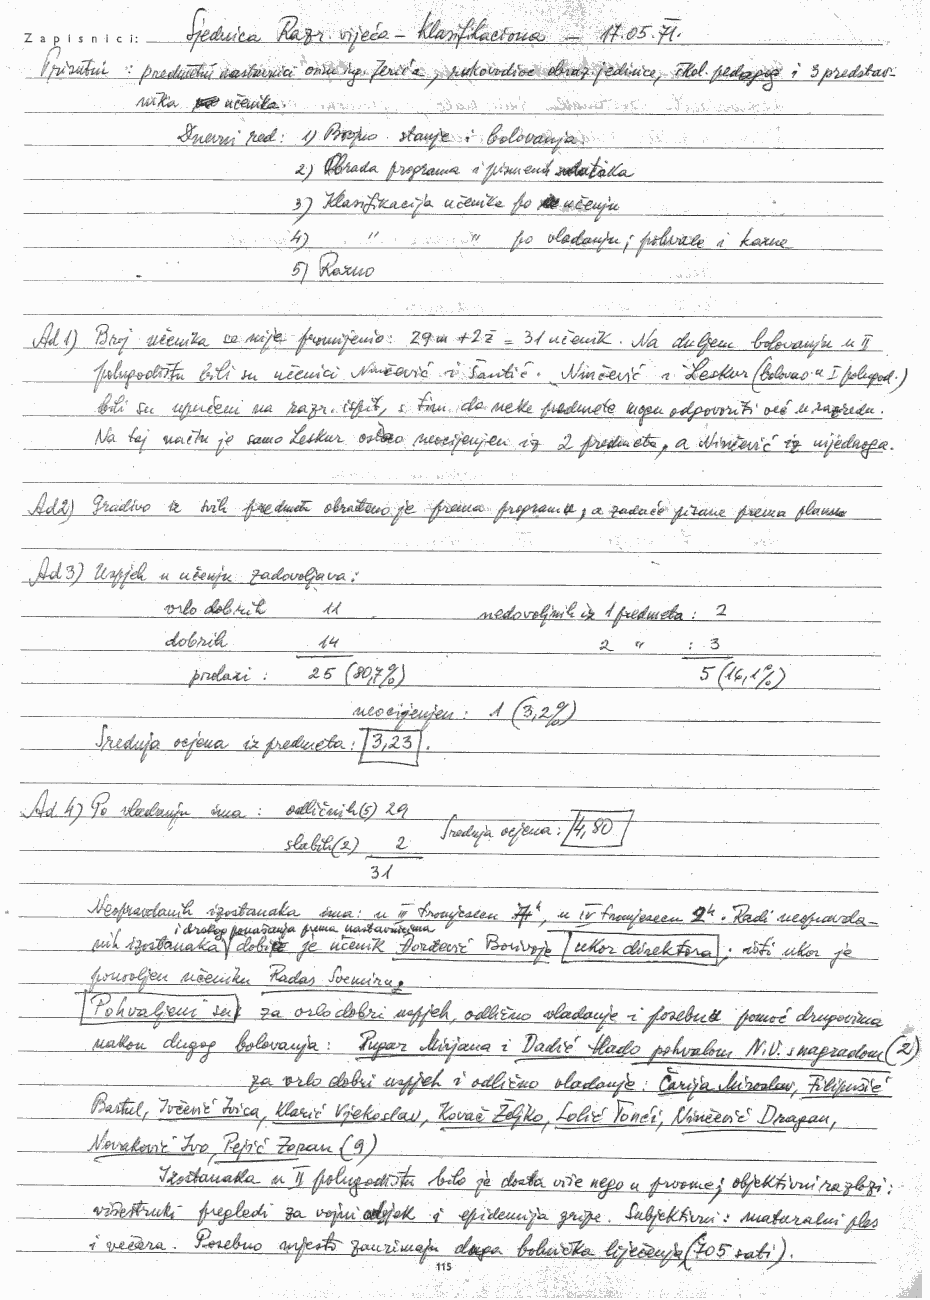 Zapisnici: Sjednica Razr. vijeća - Klasifikaciona - 17.05.71.
Prisutni: predmetni nastavnici osim ing. Jerića, rukovodioc obraz. jedinice, škol. pedagog i 3 predstav-
nika učenika.
Dnevni red: 1) Brojno stanje i bolovanja
2) Obrada programa i pismenih zadataka
3) Klasifikacija učenika po učenju
4) " " po vladanju; pohvale i kazne
5) Razno
Ad 1) Broj učenika se nije promijenio: 29m + 2ž = 31 učenik. Na duljem bolovanju u II
polugodištu bili su učenici Ninčević i Šantić. Ninčević i Leskur (bolovao u I polugod.)
bili su upućeni na razr. ispit, s tim da neke predmete mogu odgovoriti već u razredu.
Na taj način je samo Leskur ostao neocijenjen iz 2 predmeta, a Ninčević iz nijednoga.
Ad 2) Gradivo iz svih predmeta obrađeno je prema programu, a zadaće pisane prema planu
Ad 3) Uspjeh u učenju zadovoljava:
vrlo dobrih 11 nedovoljnih iz 1 predmeta: 2
dobrih 14 2 " : 3
prelazi: 25 (80,7%) 5 (16,1%)
neocijenjen: 1 (3,2%)
Srednja ocjena iz predmeta: 3,23.
Ad 4) Po vladanju ima: odličnih (5) 29
Srednja ocjena: 4,80
slabih (2) 2
31
Neopravdanih izostanaka ima: u III tromjesecu h, u IV tromjesecu 2h. Radi neopravda-
i drskog ponašanja prema nastavnicima
nih izostanaka dobio je učenik Đorđević Borivoje ukor direktora; isti ukor je
ponovljen učeniku Radas Svemiru.
Pohvaljeni su: za vrlo dobri uspjeh, odlično vladanje i posebnu pomoć drugovima
nakon dugog bolovanja: Pupar Mirjana i Dadić Mlado pohvalom N.V. s nagradom (2)
za vrlo dobri uspjeh i odlično vladanje: Čarija Miroslav, Filipušić
Bartul, Ivčević Ivica, Klarić Vjekoslav, Kovač Željko, Lolić Tonći, Ninčević Dragan,
Novaković Ivo, Pejić Zoran (9)
Izostanaka u II polugodištu bilo je dosta više nego u prvome; objektivni razlozi:
višestruki pregledi za vojni odsjek i epidemija gripe. Subjektivni: maturalni ples
i večera. Posebno mjesto zauzimaju duga bolnička liječenja (705 sati).
115